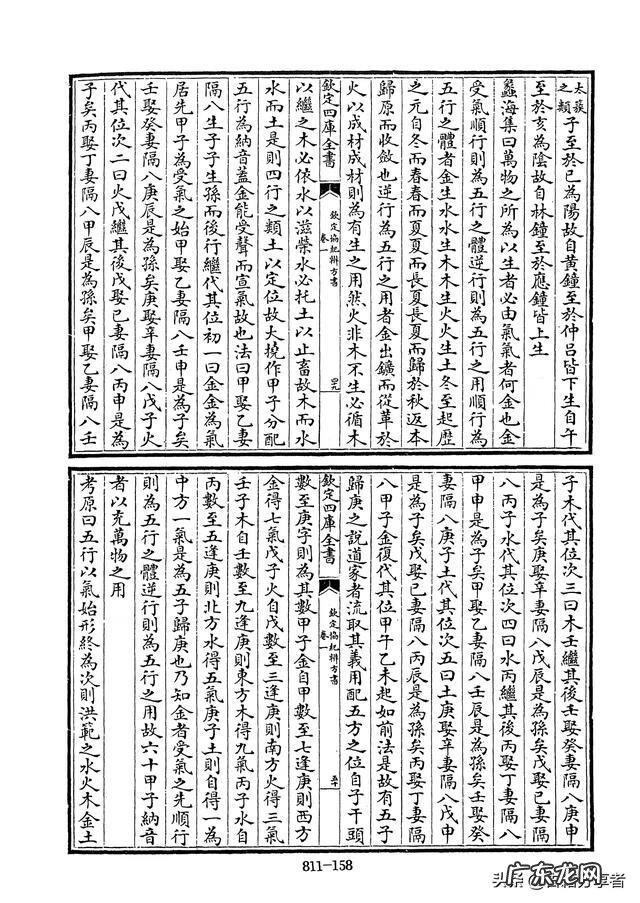 太蔟之類子至於已為陽故自黃鐘至於仲吕皆下生自午
至於亥為陰故自林鐘至於應鐘皆上生
蠡海集曰萬物之所為以生者必由氣氣者何金也金
受氣順行則為五行之體逆行則為五行之用順行為
五行之體者金生水水生木木生火火生土冬至起歷
之元自冬而春春而夏夏而長夏長夏而歸於秋返本
歸原而收斂也逆行為五行之用者金出鑛而從革於
火以成材成材則為有生之用然火非木不生必循木
欽定四庫全書
欽定協紀辨方書
卷一
四九
以繼之木必依水以滋榮水必托土以止畜故木而水
水而土是則四行之類土以定位故大撓作甲子分配
五行為納音蓋金能受聲而宣氣故也法曰甲娶乙妻
隔八生子子生孫而後行繼代其位初一曰金金為氣
居先甲子為受氣之始甲娶乙妻隔八壬申是為子矣
壬娶癸妻隔八庚辰是為孫矣庚娶辛妻隔八戊子火
代其位次二曰火戊繼其後戊娶已妻隔八丙申是為
子矣丙娶丁妻隔八甲辰是為孫矣甲娶乙妻隔八壬
子木代其位次三曰木壬繼其後壬娶癸妻隔八庚申
是為子矣庚娶辛妻隔八戊辰是為孫矣戊娶已妻隔
八丙子水代其位次四曰水丙繼其後丙娶丁妻隔八
甲申是為子矣甲娶乙妻隔八壬辰是為孫矣壬娶癸
妻隔八庚子土代其位次五曰土庚娶辛妻隔八戊申
是為子矣戊娶已妻隔八丙辰是為孫矣丙娶丁妻隔
八甲子金復代其位甲午乙未起如前法是故有五子
歸庚之說道家者流取其義用配五方之位自子干頭
欽定四庫全書
欽定協紀辨方書
卷一
五十
數至庚字則為其數甲子金自甲數至七逢庚則西方
金得七氣戊子火自戊數至三逢庚則南方火得三氣
壬子木自壬數至九逢庚則東方木得九氣丙子水自
丙數至五逢庚則北方水得五氣庚子土則自得一為
中方一氣是為五子歸庚也乃知金者受氣之先順行
則為五行之體逆行則為五行之用故六十甲子納音
者以充萬物之用
考原曰五行以氣始形終為次則洪範之水火木金土
811-158
广东龙网